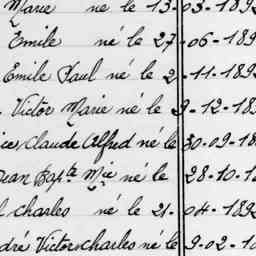 Marie né le 13-03-189
Emile né le 27-06-189
Emile Paul né le 2-11-189
Victor Marie né le 9-12-18
Claude Alfred né le 30-09-18
Jean Bapte Mie né le 28-10-1
Charles né le 21-04-189
Victor Charles né le 9-02-1